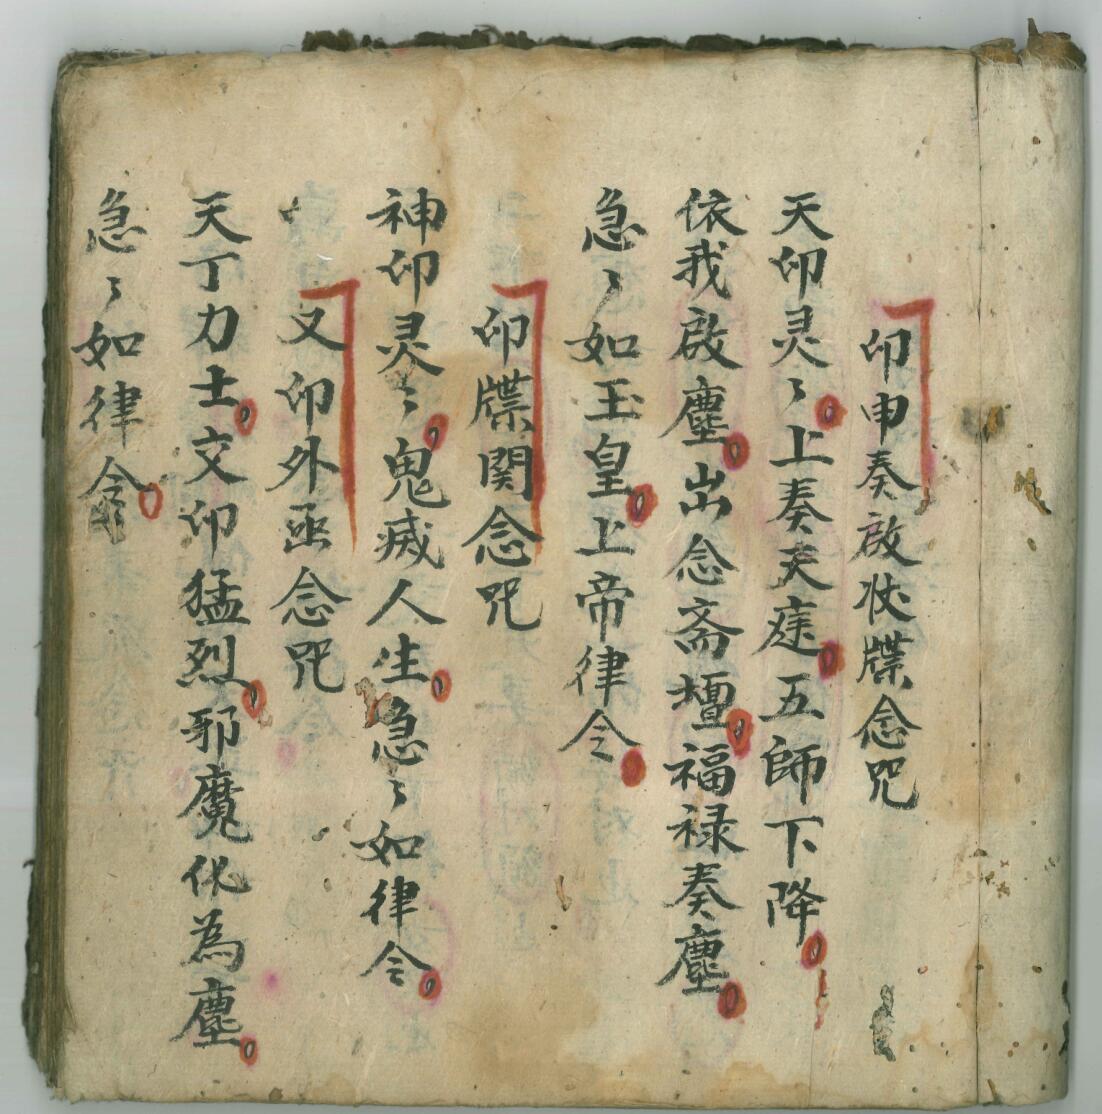 印申奏啟狀牒念咒
天印灵〻上奏天庭五師下降
依我啟塵出念斋壇福禄奏塵
急〻如玉皇上帝律令
印牒関念咒
神印灵〻鬼滅人生急〻如律令
又印外函念咒
天丁力士文印猛烈邪魔化為塵
急〻如律令